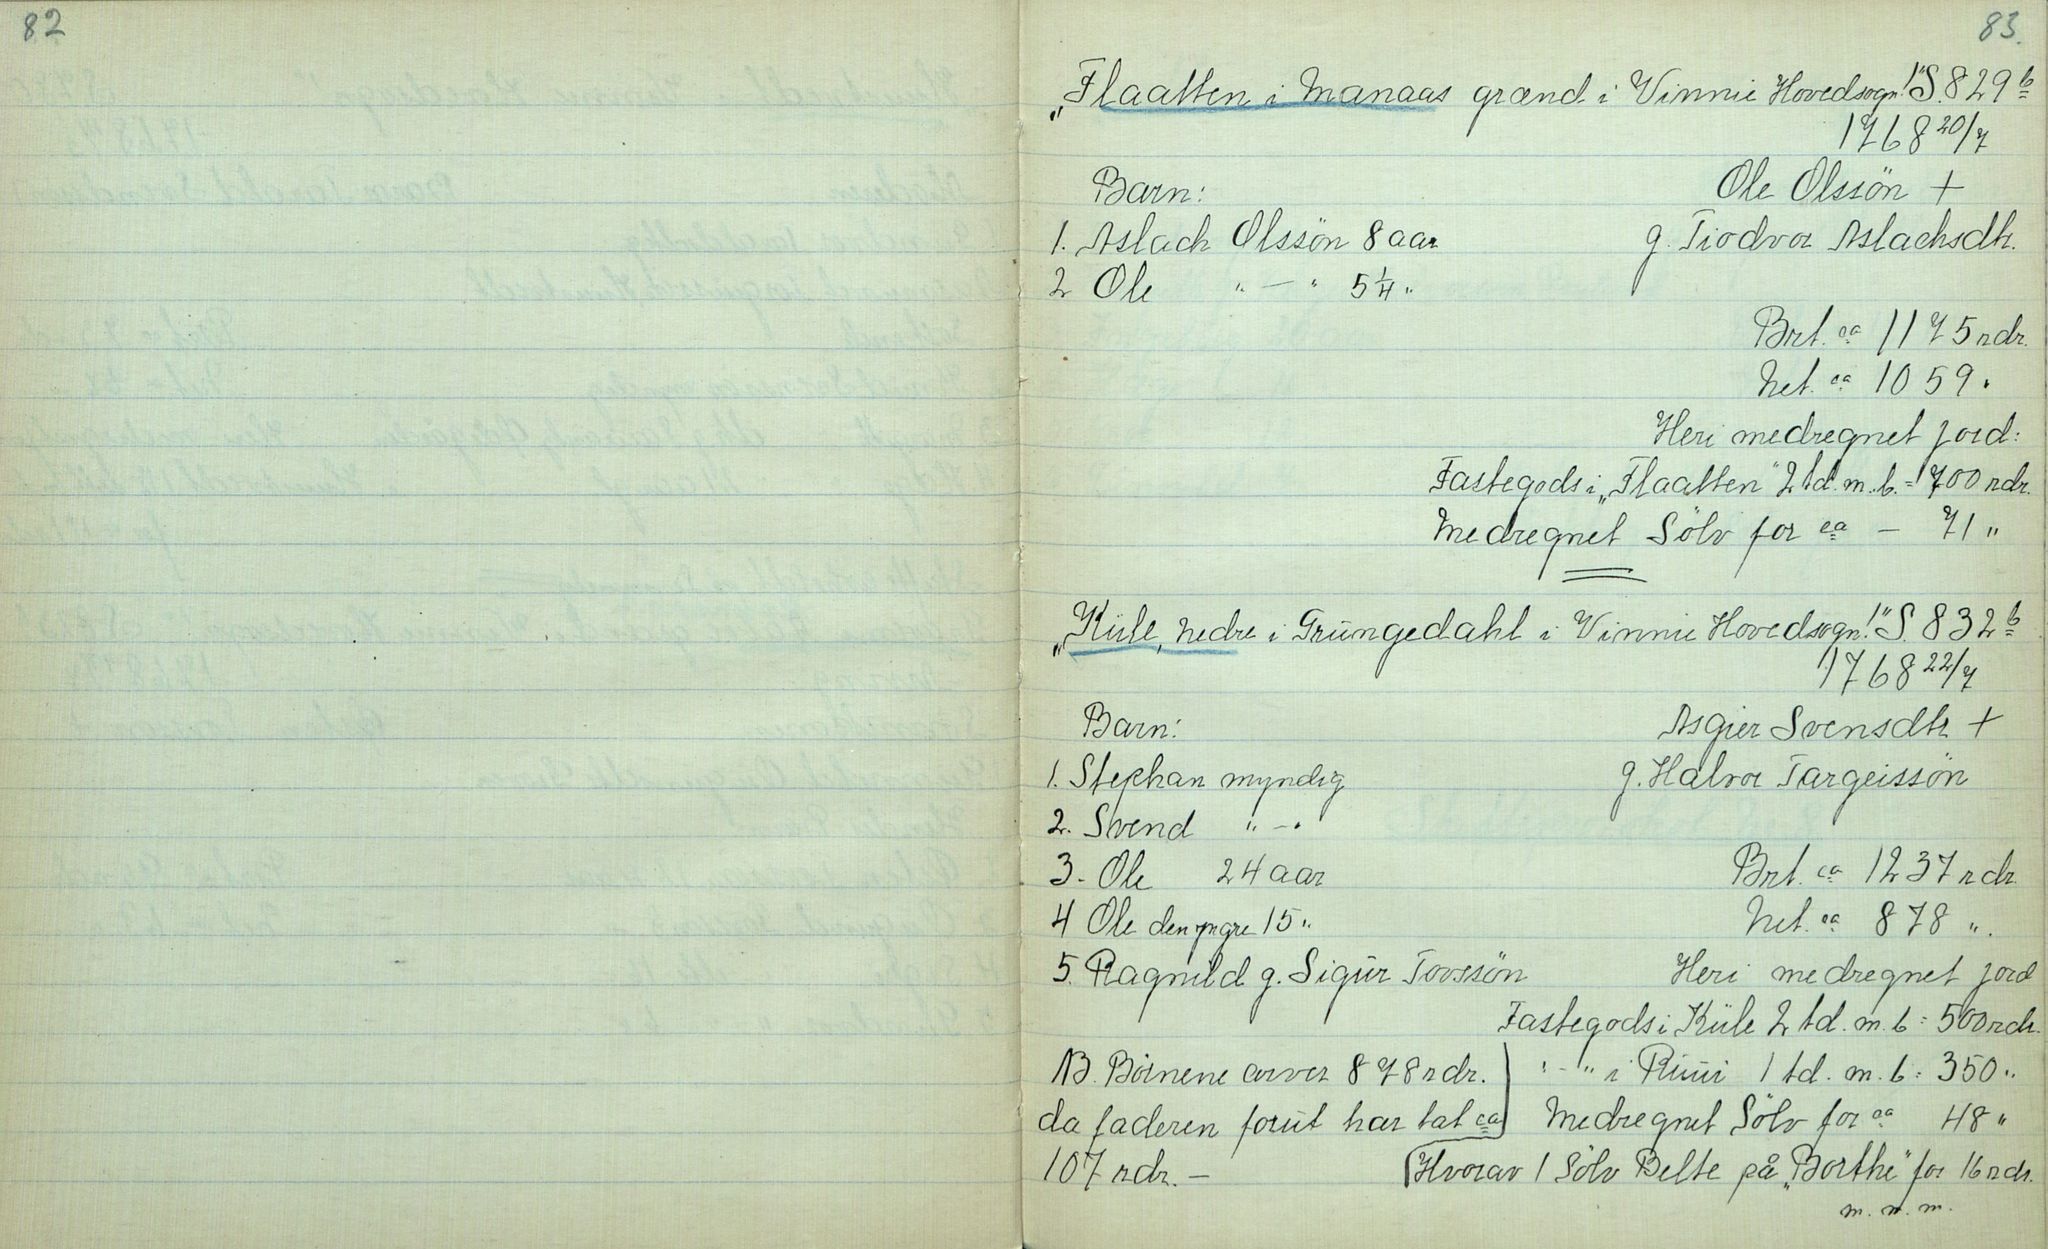 82
83.
„Flaatten i Manaas grænd i Vinnie Hovedsogn!" S. 829 b
1768 20/7
Barn: Ole Olssön +
1. Aslach Olssön 8 aar g. Tiodvor Aslachsdtr.
2 Ole " — " 5 1/4 "
Brt. ca 1175 rdr.
Net. ca 1059 "
Heri medregnet jord:
Fastegods i „Flaatten" 2 td. m. b. = 700 rdr.
Medregnet Sölv for ca — 71 "
„Kule, nedre i Grungedahl i Vinnie Hovedsogn!" S. 832 b
1768 22/7
Barn: Asgier Svensdtr +
1. Stephan myndig g. Halvor Targeissön
2. Svend " — "
3. Ole 24 aar Brt. ca 1237 rdr
4 Ole den yngre 15 " Net. ca 878 ".
5. Ragnild g. Sigur Tovssön Heri medregnet jord
Fastegods i Kule 2 td. m. b = 500 rdr.
NB. Börnene arver 878 rdr. " — " i Ruui 1 td. m. b = 350 "
da faderen forut har tat ca Medregnet Sölv for ca 48 "
107 rdr. — Hvorav 1 Sölv Belte på „Borthe" for 16 rdr.
m. m. m.